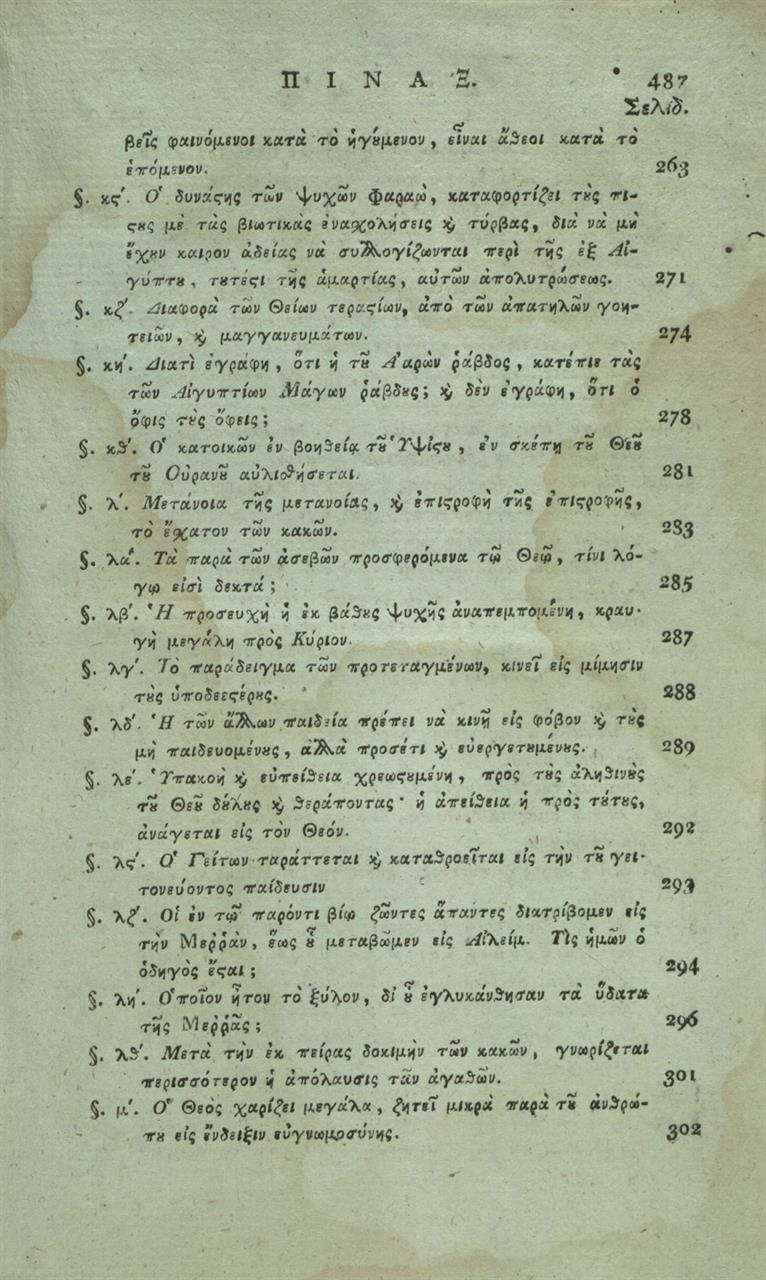 ΠΙΝΑΞ. 487
Σελιδ.
βεῖς φαινόμενοι κατὰ τὸ ἡγȣ́μενον, εἶναι ἄθεοι κατὰ τὸ
ἑπόμενον. 263
§. κϛ΄. Ὁ δυνάϛης τῶν Ψυχῶν Φαραὼ, καταφορτίζει τȣ̀ς πι-
ϛȣς μὲ τὰς βιωτικὰς ἐνασχολήσεις ϗ τύρβας, διὰ νὰ μὴ
ἔχȣν καιρον ἀδείας νὰ συλλογίζωνται περὶ τῆς ἐξ Αἰ-
γύπτȣ, τȣτέϛι τῆς ἁμαρτίας, αὐτῶν ἀπολυτρώσεως. 271
§. κζ΄. Διαφορὰ τῶν Θείων τεραϛίων, ἀπὸ τῶν ἀπατηλῶν γοη-
τειῶν, ϗ μαγγανευμάτων. 274
§. κή. Διατὶ ἐγράφη, ὅτι ἡ τȣ͂ Ἀαρὼν ῥάβδος, κατέπιε τὰς
τῶν Αἰγυπτίων Μάγων ῥάβδȣς; ϗ δὲν ἐγράφη, ὅτι ὁ
ὄφις τȣ̀ς ὄφεις; 278
§. κθ΄. Ὁ κατοικῶν ἐν βοηθείᾳ τȣ͂ Ὑψίϛȣ, ἐν σκέπῃ τȣ͂ Θεȣ͂
τȣ͂ Οὐρανȣ͂ αὐλισθήσεται. 281
§. λ΄. Μετάνοια τῆς μετανοίας, ϗ ἐπιϛροφὴ τῆς ἐπιϛροφῆς,
τὸ ἔσχατον τῶν κακῶν. 283
§. λά. Τὰ παρὰ τῶν ἀσεβῶν προσφερόμενα τῷ Θεῷ, τίνι λό-
γῳ εἰσὶ δεκτά; 285
§. λβ΄. Ἡ προσευχὴ ἡ ἐκ βάθȣς ψυχῆς ἀναπεμπομένη, κραυ-
γὴ μεγάλη πρὸς Κύριον. 287
§. λγ΄. Τὸ παράδειγμα τῶν προτεταγμένων, κινεῖ εἰς μίμησιν
τȣ̀ς ὑποδεεϛέρȣς. 288
§. λδ΄. Ἡ τῶν ἄλλων παιδεία πρέπει νὰ κινῇ εἰς φόβον ϗ τȣ̀ς
μὴ παιδευομένȣς, ἀλλὰ προσέτι ϗ εὐεργετȣμένȣς. 289
§. λε΄. Ὑπακοὴ ϗ εὐπείθεια χρεωϛȣμένη, πρὸς τȣ̀ς ἀληθινȣ̀ς
τȣ͂ Θεȣ͂ δȣ́λȣς ϗ θεράποντας· ἡ ἀπείθεια ἡ πρὸς τȣ́τȣς,
ἀνάγεται εἰς τὸν Θεόν. 292
§. λϛ΄. Ὁ Γείτων ταράττεται ϗ καταθροεῖται εἰς τὴν τȣ͂ γει-
τονεύοντος παίδευσιν 293
§. λζ΄. Οἱ ἐν τῷ παρόντι βίῳ ζῶντες ἅπαντες διατρίβομεν εἰς
τὴν Μεῤῥὰν, ἕως ȣ̔͂ μεταβῶμεν εἰς Αἰλείμ. Τὶς ἡμῶν ὁ
ὁδηγὸς ἔϛαι; 294
§. λή. Ὁποῖον ἦτον τὸ ξύλον, δι' ȣ̔͂ ἐγλυκάνθησαν τὰ ὕδατα
τῆς Μεῤῥᾶς; 296
§. λθ΄. Μετὰ τὴν ἐκ πείρας δοκιμὴν τῶν κακῶν, γνωρίζεται
περισσότερον ἡ ἀπόλαυσις τῶν ἀγαθῶν. 301
§. μ΄. Ὁ Θεὸς χαρίζει μεγάλα, ζητεῖ μικρὰ παρὰ τȣ͂ ἀνθρώ-
πȣ εἰς ἔνδειξιν εὐγνωμοσύνης. 302